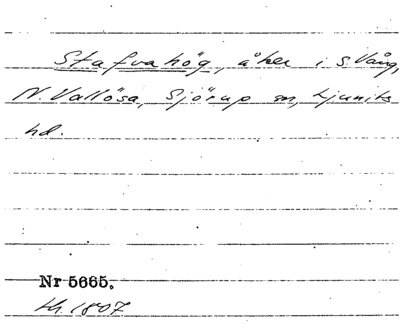 Stafvahög, åker i S. Vång,
N. Vallösa, Sjörup sn, Ljunits
hd.
Nr 5665.
kh. 1807